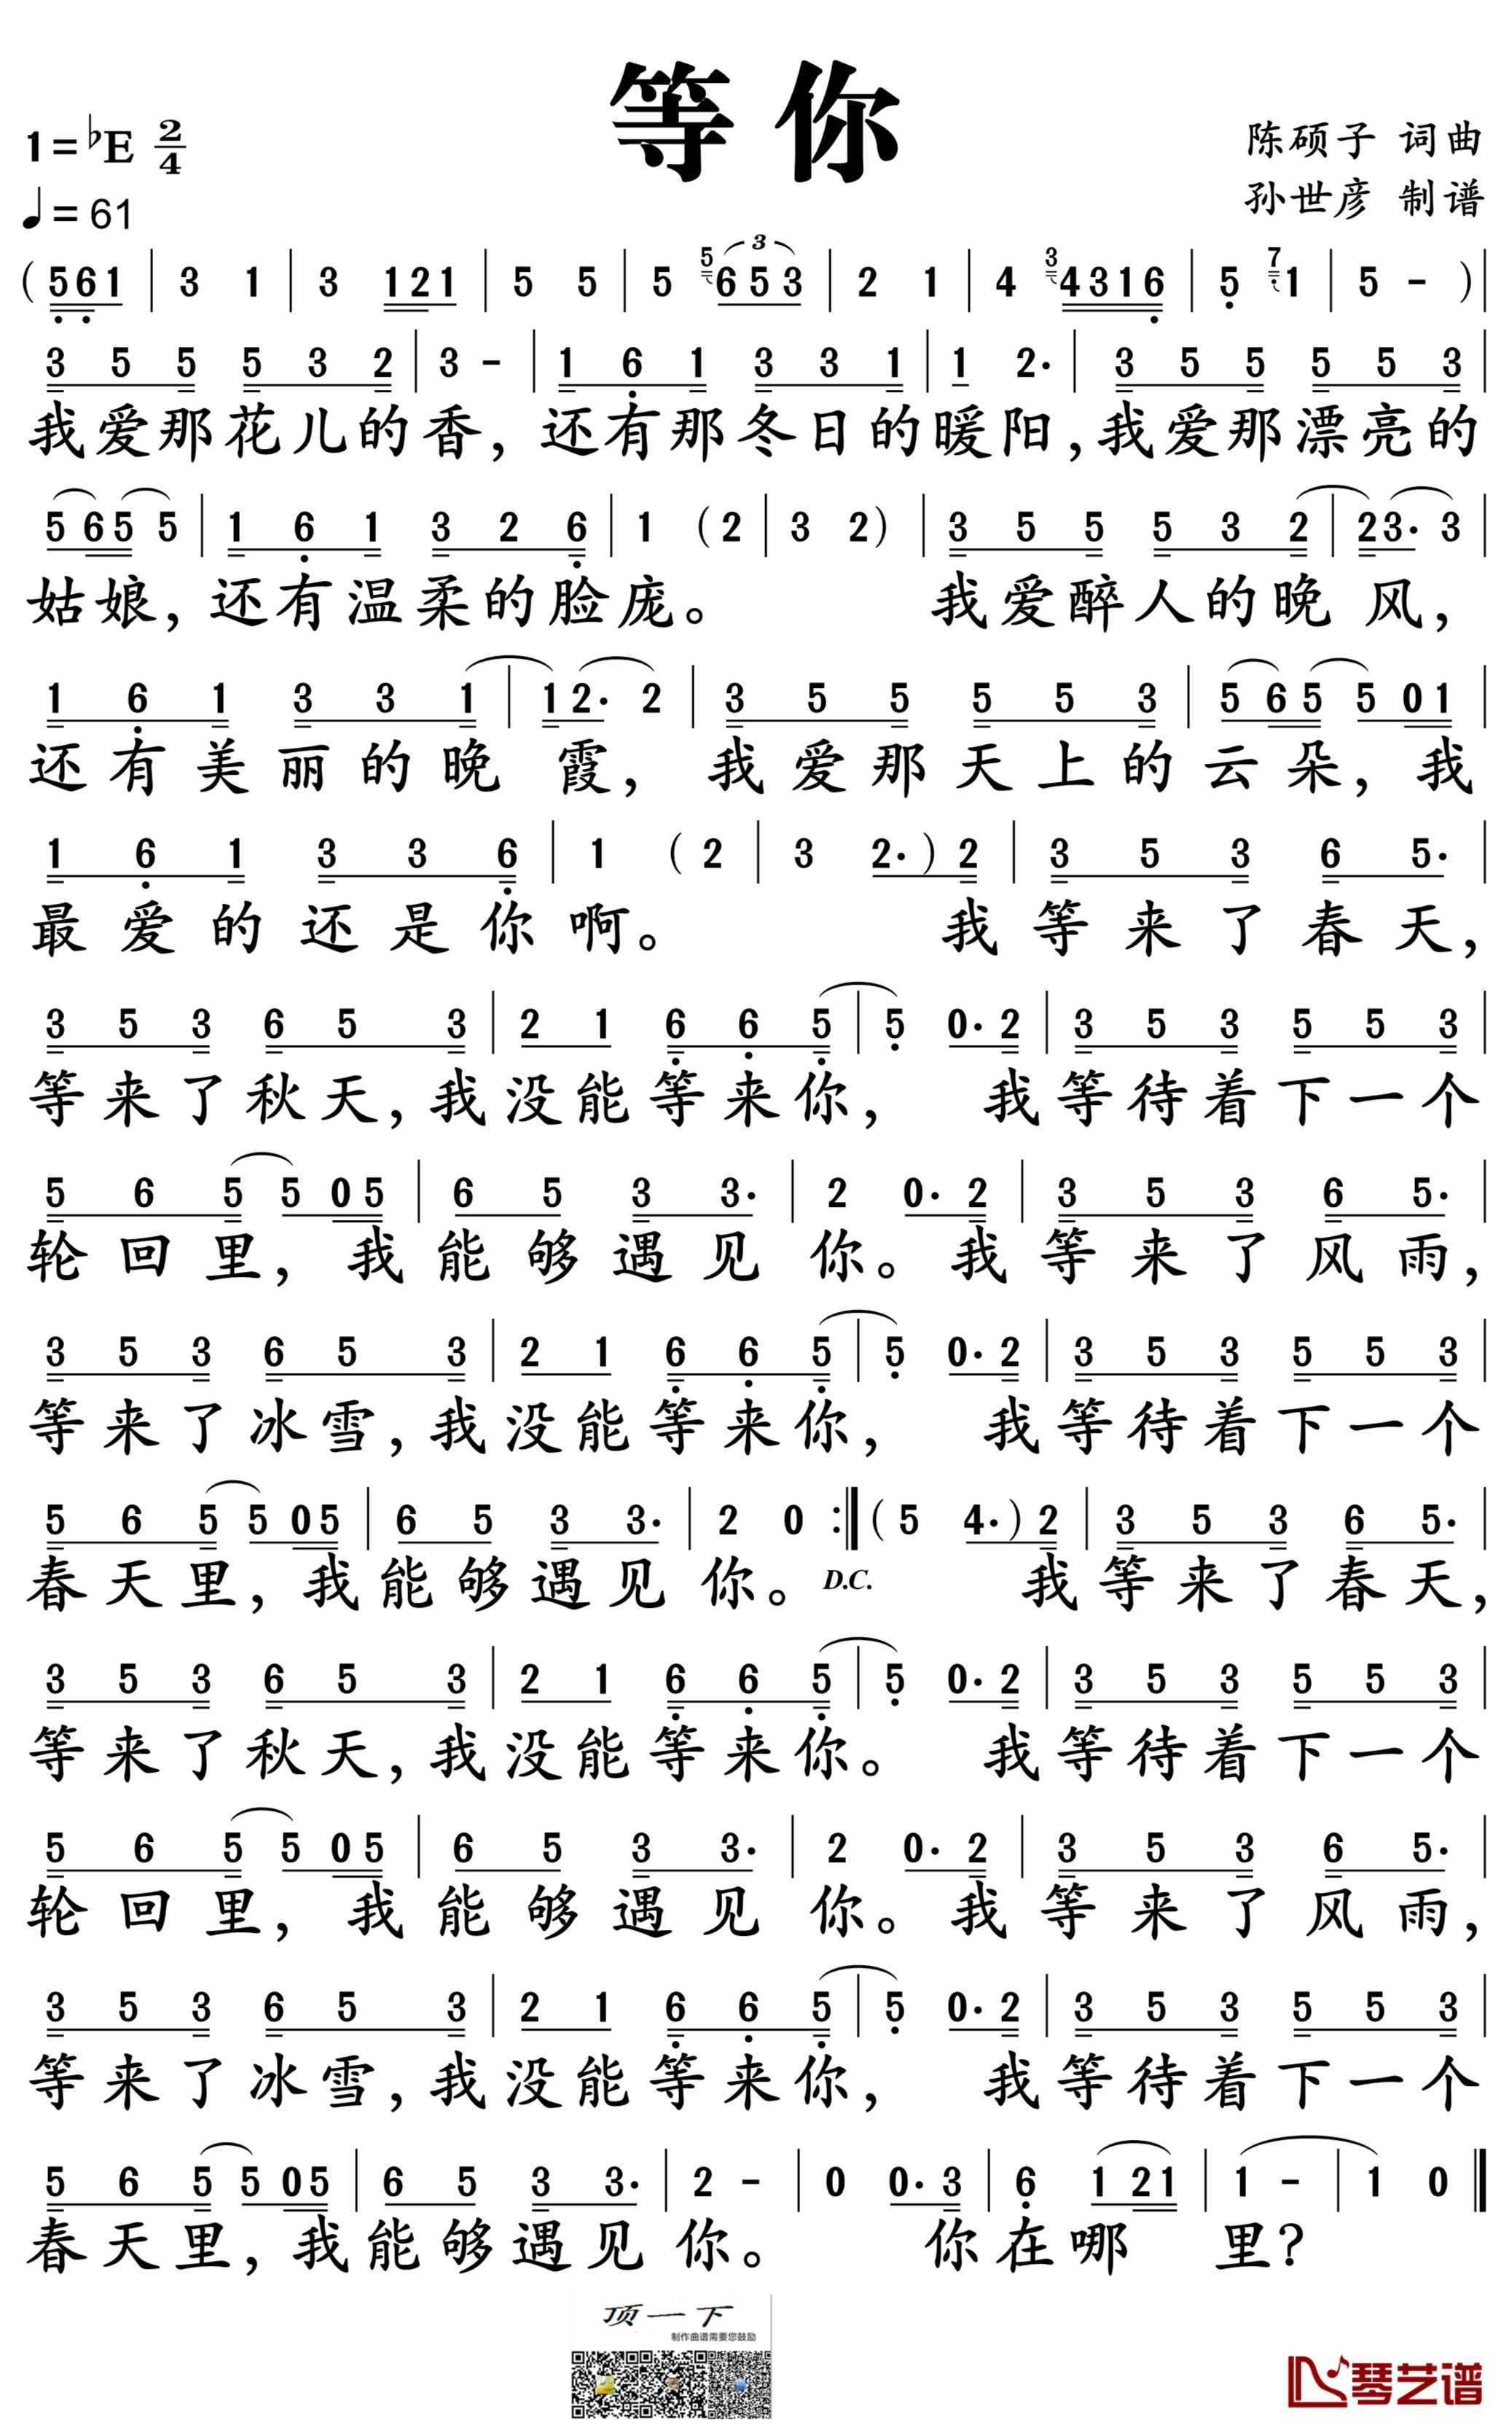 等你
1=♭E 2/4
陈硕子 词曲
♩=61
孙世彦 制谱
(561 | 3 1 | 3 121 | 5 5 | 5 5 653 3 | 2 1 | 4 3 4316 | 5 7 1 | 5 - )
3 5 5 5 3 2 | 3 - | 1 6 1 3 3 1 | 1 2. | 3 5 5 5 5 3 |
我爱那花儿的香，还有那冬日的暖阳，我爱那漂亮的
5 65 5 | 1 6 1 3 2 6 | 1 (2 | 3 2) | 3 5 5 5 3 2 | 23. 3 |
姑娘，还有温柔的脸庞。 我爱醉人的晚 风，
1 6 1 3 3 1 | 12. 2 | 3 5 5 5 5 3 | 5 65 5 01 |
还有美丽的晚 霞，我爱那天上的云朵，我
1 6 1 3 3 6 | 1 (2 | 3 2.) 2 | 3 5 3 6 5. |
最爱的还是你啊。 我等来了春天，
3 5 3 6 5 3 | 2 1 6 6 5 | 5 0. 2 | 3 5 3 5 5 3 |
等来了秋天，我没能等来你， 我等待着下一个
5 6 5 5 05 | 6 5 3 3. | 2 0. 2 | 3 5 3 6 5. |
轮回里，我能够遇见 你。我等来了风雨，
3 5 3 6 5 3 | 2 1 6 6 5 | 5 0. 2 | 3 5 3 5 5 3 |
等来了冰雪，我没能等来你， 我等待着下一个
5 6 5 5 05 | 6 5 3 3. | 2 0 :|| (5 4.) 2 | 3 5 3 6 5. |
春天里，我能够遇见 你。D.C. 我等来了春天，
3 5 3 6 5 3 | 2 1 6 6 5 | 5 0. 2 | 3 5 3 5 5 3 |
等来了秋天，我没能等来你。 我等待着下一个
5 6 5 5 05 | 6 5 3 3. | 2 0. 2 | 3 5 3 6 5. |
轮回里，我能够遇见 你。我等来了风雨，
3 5 3 6 5 3 | 2 1 6 6 5 | 5 0. 2 | 3 5 3 5 5 3 |
等来了冰雪，我没能等来你， 我等待着下一个
5 6 5 5 05 | 6 5 3 3. | 2 - | 0 0. 3 | 6 1 21 | 1 - | 1 0 ||
春天里，我能够遇见 你。 你在哪 里？
顶一下
制作曲谱需要您鼓励
琴艺谱